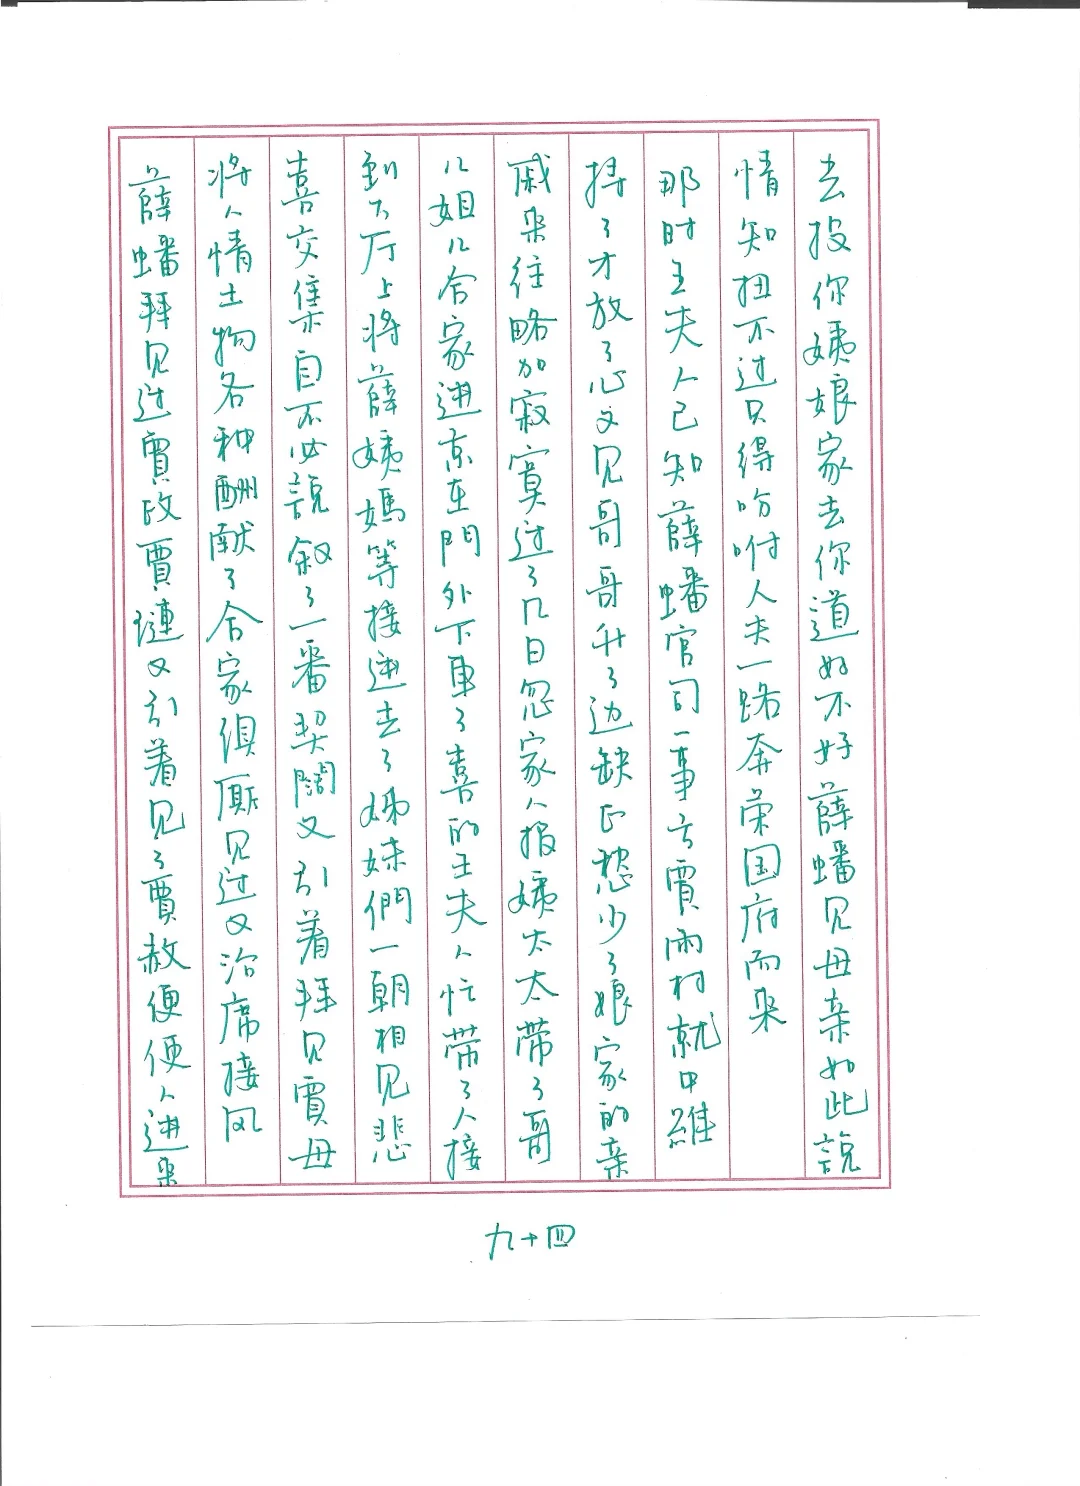 去投你姨娘家去你道好不好薛蟠见母亲如此說
情知扭不过只得吩咐人夫一路奔荣国府而来
那时王夫人已知薛蟠官司一事亏賈雨村就中維
持了才放了心又见哥哥升了边缺正愁少了娘家的亲
戚来往略加寂寞过了几日忽家人报姨太太带了哥
儿姐儿合家进京在門外下車了喜的王夫人忙带了人接
到大厅上将薛姨媽等接进去了姊妹們一朝相见悲
喜交集自不必說叙了一番契闊又引着拜见賈母
将人情土物各种酬献了合家俱厮见过又治席接风
薛蟠拜见过賈政賈璉又引着见了賈赦便便人进来
九十四